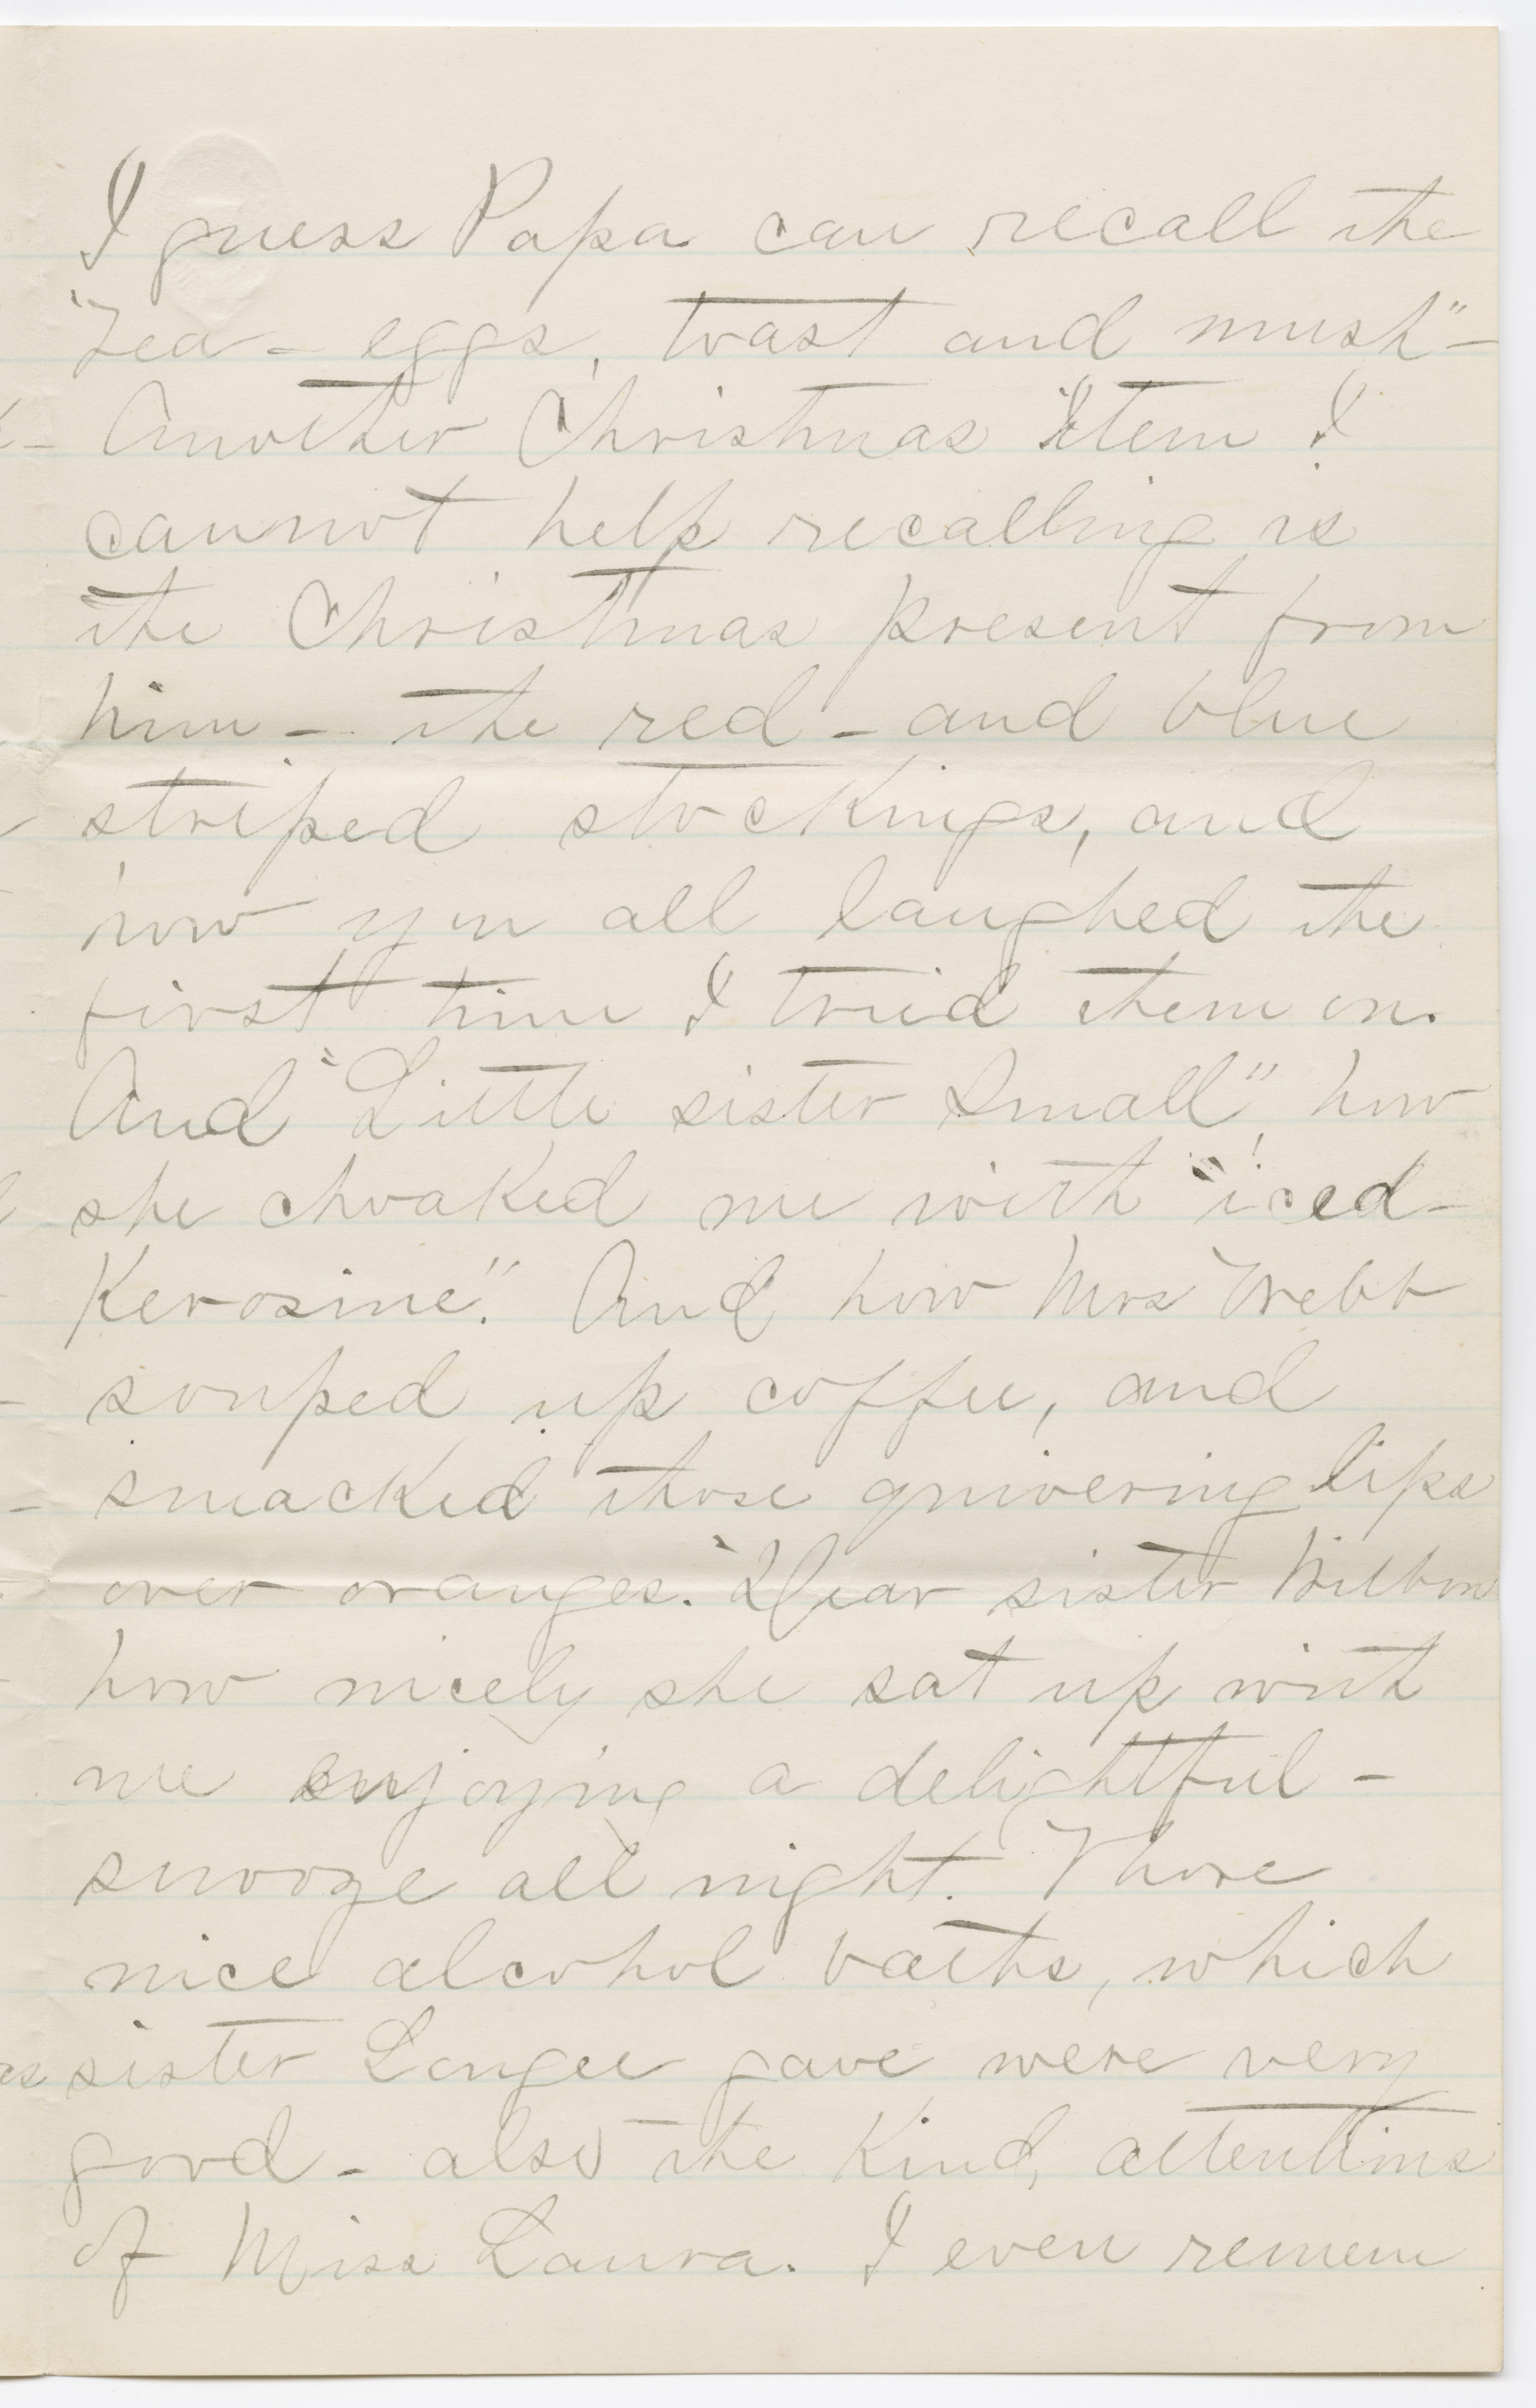 I guess Papa can recall the
"Tea - eggs, toast and mush" -
Another Christmas Item I
cannot help recalling is
the Christmas present from
him - the red - and blue
striped stockings, and
how you all laughed the
first time I tried them on.
And "Little sister Small", how
she choaked me with "iced -
Kerosine". And how Mrs Webb
souped up coffee, and
smacked those quivering lips
over oranges. "Dear sister
how nicely she sat up with
me enjoying a delightful -
snooze all night. Those
nice alcohol baths, which
sister Longee gave were very
good - also the Kind, attentions
of Miss Laura. I even remem